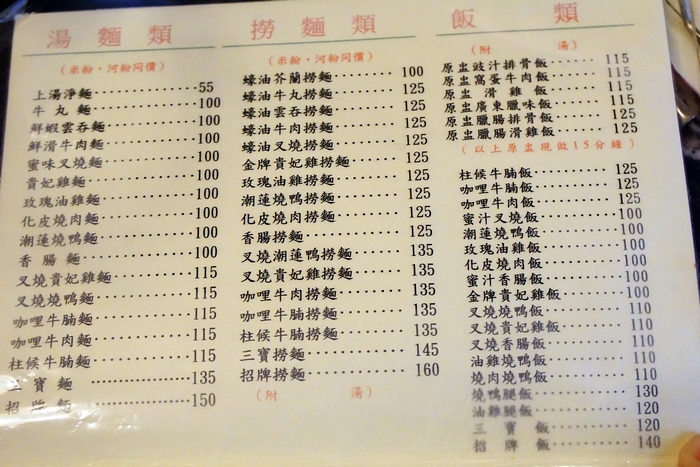 湯麵類
(米粉·河粉同價)
上湯淨麵 55
牛丸麵 100
鮮蝦雲吞麵 100
鮮滑牛肉麵 100
蜜味叉燒麵 100
貴妃雞麵 100
玫瑰油雞麵 100
化皮燒肉麵 100
潮蓮燒鴨麵 100
香腸麵 100
叉燒貴妃雞麵 115
叉燒燒鴨麵 115
咖哩牛腩麵 115
咖哩牛肉麵 115
柱候牛腩麵 115
三寶麵 135
招牌麵 150
撈麵類
(米粉·河粉同價)
蠔油芥蘭撈麵 100
蠔油牛丸撈麵 125
蠔油雲吞撈麵 125
蠔油牛肉撈麵 125
蠔油叉燒撈麵 125
金牌貴妃雞撈麵 125
玫瑰油雞撈麵 125
潮蓮燒鴨撈麵 125
化皮燒肉撈麵 125
香腸撈麵 125
叉燒潮蓮鴨撈麵 135
叉燒貴妃雞撈麵 135
咖哩牛肉撈麵 135
咖哩牛腩撈麵 135
柱候牛腩撈麵 135
三寶撈麵 145
招牌撈麵 160
(附湯)
飯類
(附湯)
原盅豉汁排骨飯 115
原盅窩蛋牛肉飯 115
原盅滑雞飯 115
原盅廣東臘味飯 115
原盅臘腸排骨飯 125
原盅臘腸滑雞飯 125
(以上原盅現做15分鐘)
柱候牛腩飯 125
咖哩牛腩飯 125
咖哩牛肉飯 125
蜜汁叉燒飯 100
潮蓮燒鴨飯 100
玫瑰油雞飯 100
化皮燒肉飯 100
蜜汁香腸飯 100
金牌貴妃雞飯 100
叉燒燒鴨飯 110
叉燒貴妃雞飯 110
叉燒香腸飯 110
油雞燒鴨飯 110
燒肉燒鴨飯 110
燒鴨腿飯 130
油雞腿飯 120
三寶飯 120
招牌飯 140